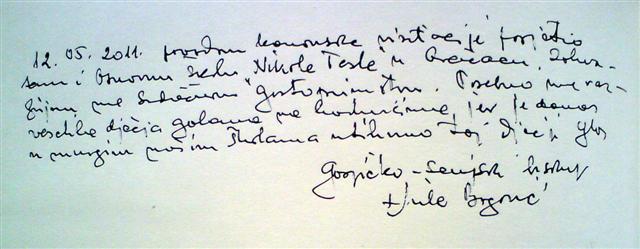 12. 05. 2011. povodom kanonske vizitacije posjetio
sam i Osnovnu školu "Nikole Tesle" u Gračacu. Zahva-
ljujem na srdačnom gostoprimstvu. Posebno me raz-
veselila dječja galama na hodnicima, jer je danas
u mnogim našim školama utihnuo taj dječji glas
Gospićko-senjski biskup
+ Mile Bogović